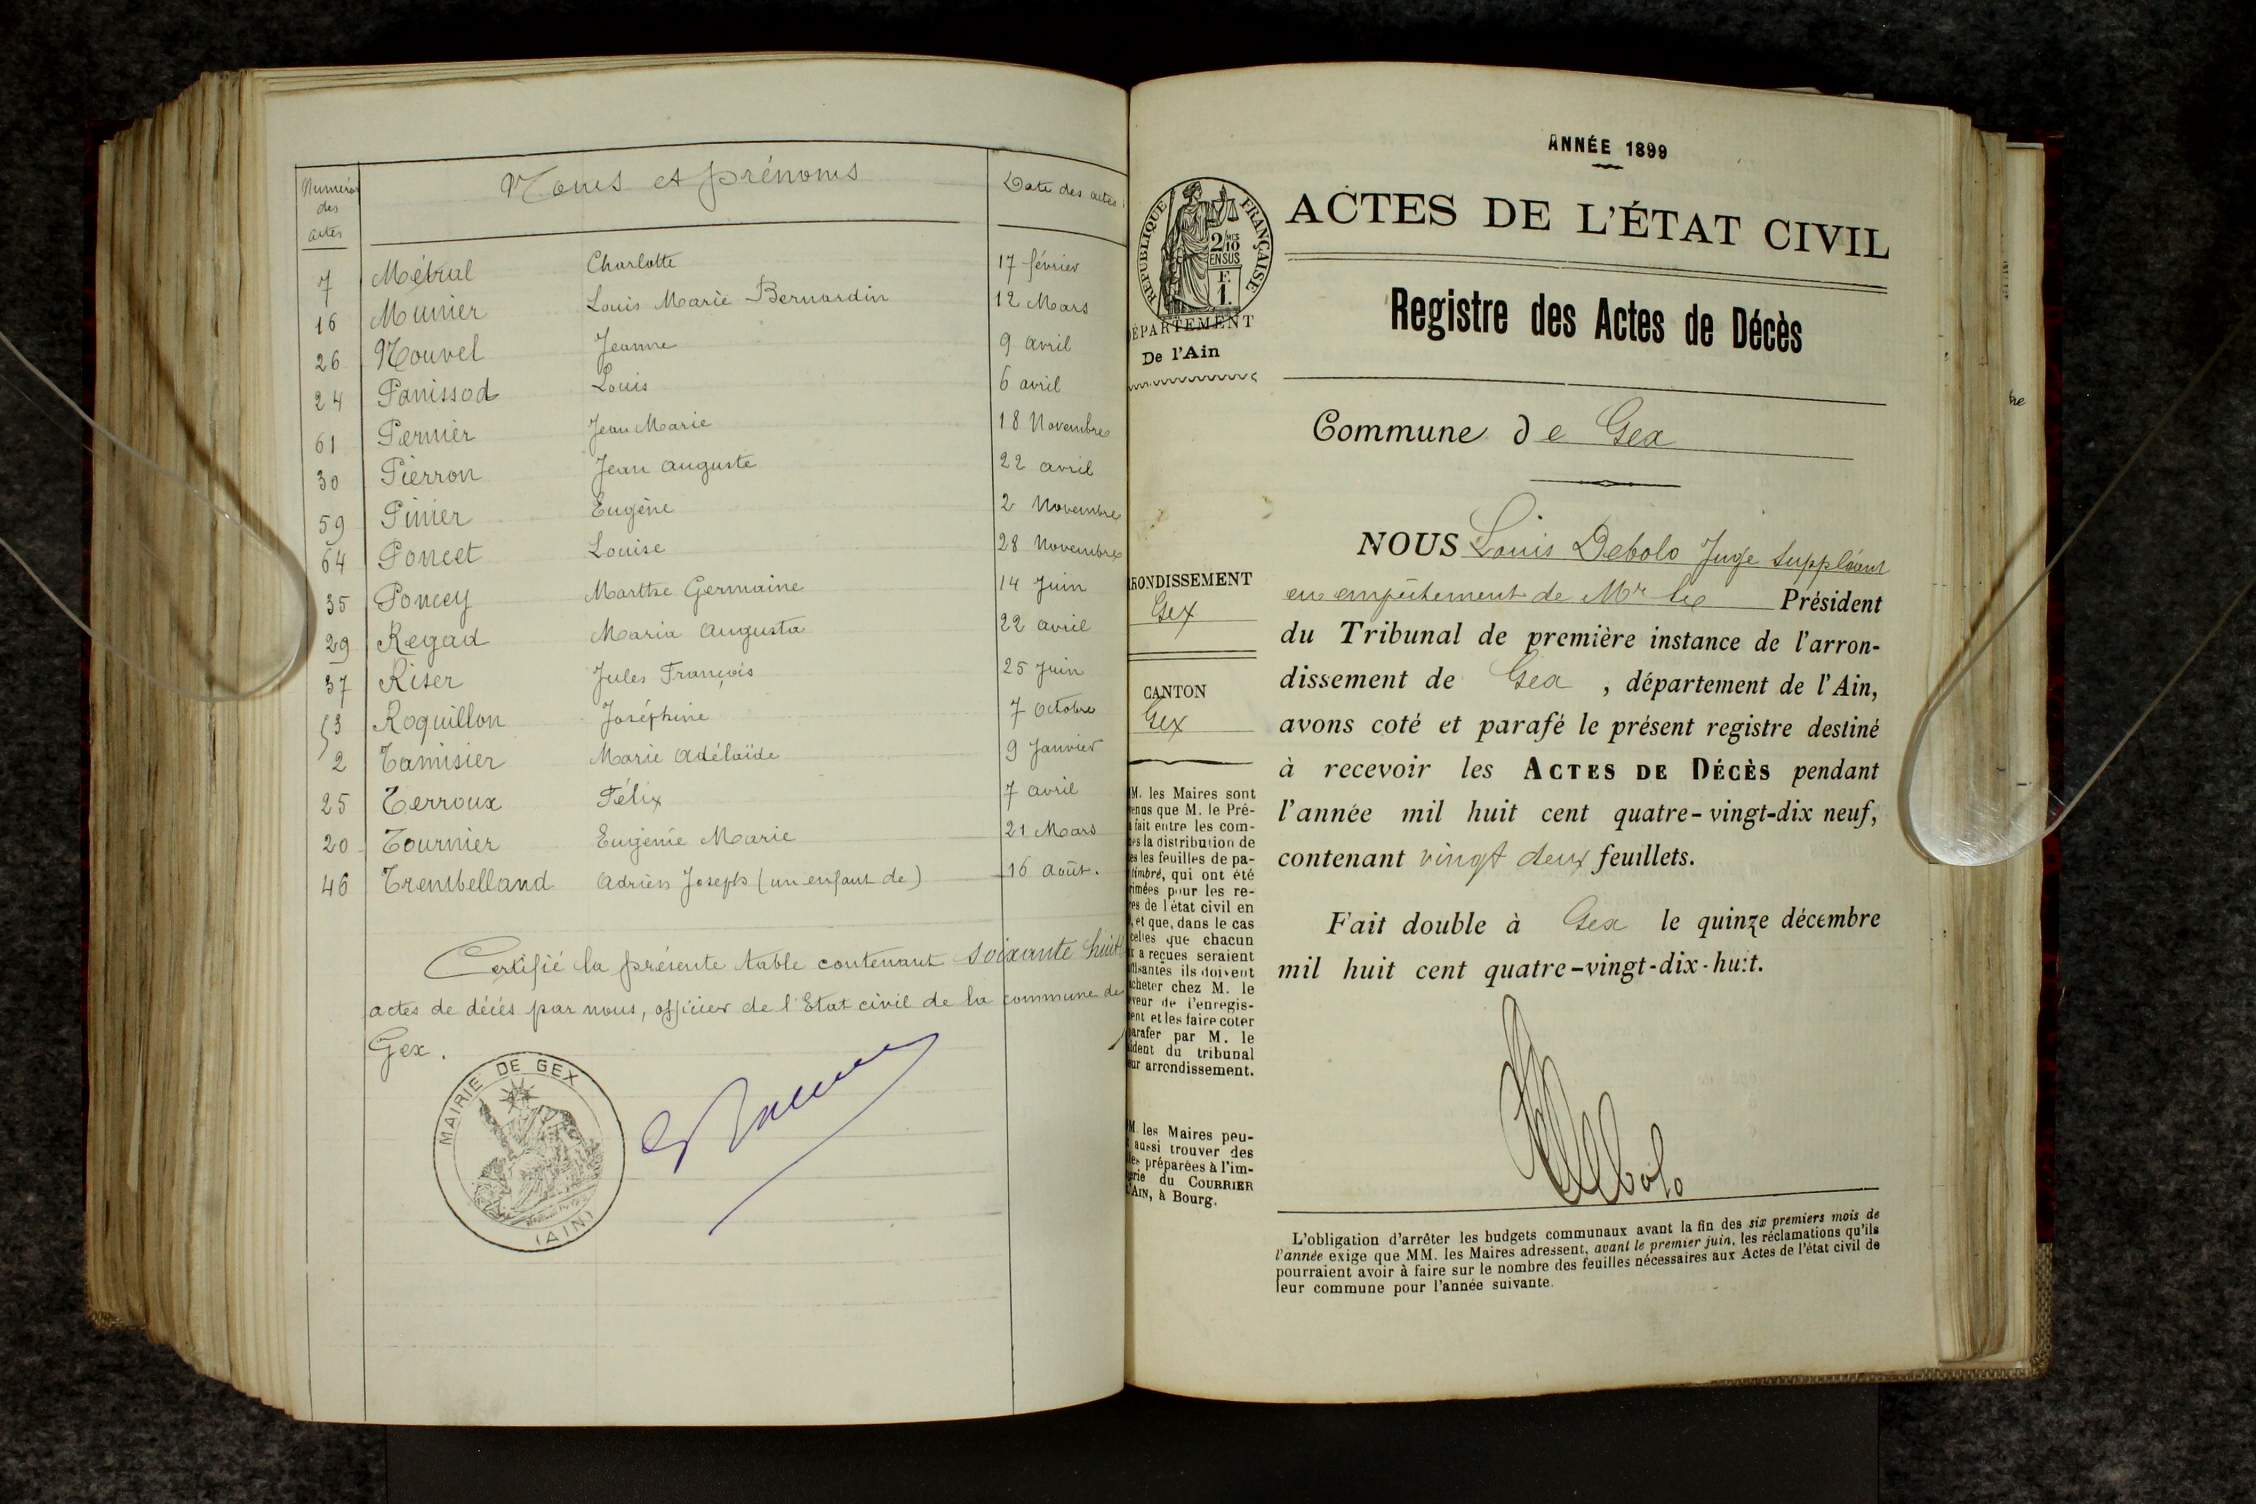 Numéros des actes
Noms et prénoms
Date des actes
7 Métral Charlotte 17 février
16 Munier Louis Marie Bernardin 12 Mars
26 Nouvel Jeanne 9 avril
24 Panissod Louis 6 avril
61 Pernier Jean Marie 18 Novembre
30 Pierron Jean auguste 22 avril
59 Pinier Eugène 2 Novembre
64 Poncet Louise 28 Novembre
35 Poncey Marthe Germaine 14 Juin
29 Regad Maria Augusta 22 avril
37 Riser Jules François 25 Juin
53 Roquillon Joséphine 7 Octobre
2 Tamisier Marie Adélaïde 9 Janvier
25 Terroux Félix 7 avril
20 Tournier Eugénie Marie 21 Mars
46 Trembelland Adrien Joseph (un enfant de) 16 Août.
Certifié la présente table contenant soixante huit
actes de décés par nous, officier de l'Etat civil de la commune de
Gex.
MAIRIE DE GEX
(AIN)
ANNÉE 1899
RÉPUBLIQUE FRANÇAISE
2/10
EN SUS
F.
1.
ACTES DE L'ÉTAT CIVIL
Registre des Actes de Décès
DÉPARTEMENT
De l'Ain
Commune de Gex
RONDISSEMENT
Gex
CANTON
Gex
NOUS Louis Debolo Juge Suppléant
en empêchement de Mr le Président
du Tribunal de première instance de l'arron-
dissement de Gex , département de l'Ain,
avons coté et parafé le présent registre destiné
à recevoir les ACTES DE DÉCÈS pendant
l'année mil huit cent quatre-vingt-dix neuf,
contenant vingt deux feuillets.
Fait double à Gex le quinze décembre
mil huit cent quatre-vingt-dix-huit.
Debolo
M. les Maires sont
que M. le Pré-
fait entre les com-
la distribution de
les feuilles de pa-
timbré, qui ont été
pour les re-
de l'état civil en
et que, dans le cas
celles que chacun
a reçues seraient
ils doivent
chez M. le
de l'enregis-
et les faire coter
parafer par M. le
du tribunal
arrondissement.
M. les Maires peu-
aussi trouver des
préparées à l'im-
du COURRIER
L'AIN, à Bourg.
L'obligation d'arrêter les budgets communaux avant la fin des six premiers mois de
l'année exige que MM. les Maires adressent, avant le premier juin, les réclamations qu'ils
pourraient avoir à faire sur le nombre des feuilles nécessaires aux Actes de l'état civil de
leur commune pour l'année suivante.